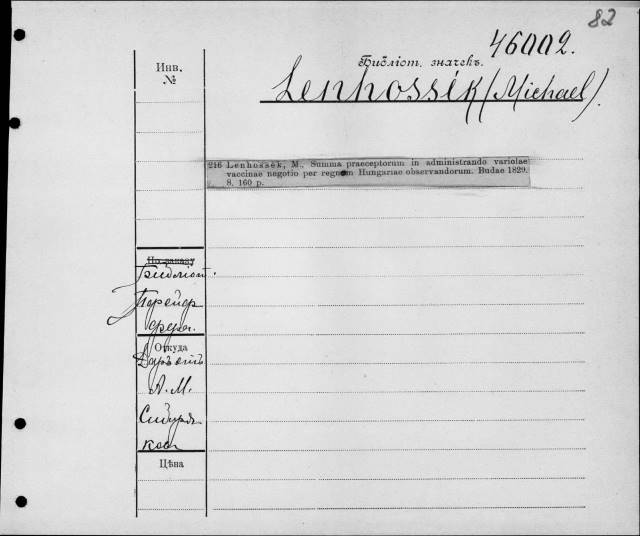 82
46002.
Инв.
№
Библіот. значекъ.
Lenhossék (Michael).
216 Lenhossék, M., Summa praeceptorum in administrando variolae
vaccinae negotio per regnum Hungariae observandorum. Budae 1829.
8. 160 p.
По заказу
Библіот.
Порейр
фера.
Откуда
Даръ отъ
А. М.
Сибиря-
кова
Цѣна